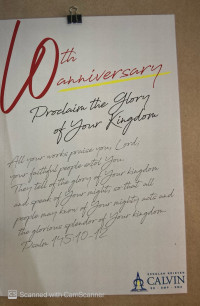 60th
anniversary
Proclaim the Glory
of Your Kingdom
All your works praise you, Lord
your faithful people extol You
They tell of the glory of Your kingdom
and speak of Your might, so that all
people may know of Your mighty acts and
the glorious splendor of Your kingdom.
Psalm 145:10-12
CALVIN
Scanned with CamScanner